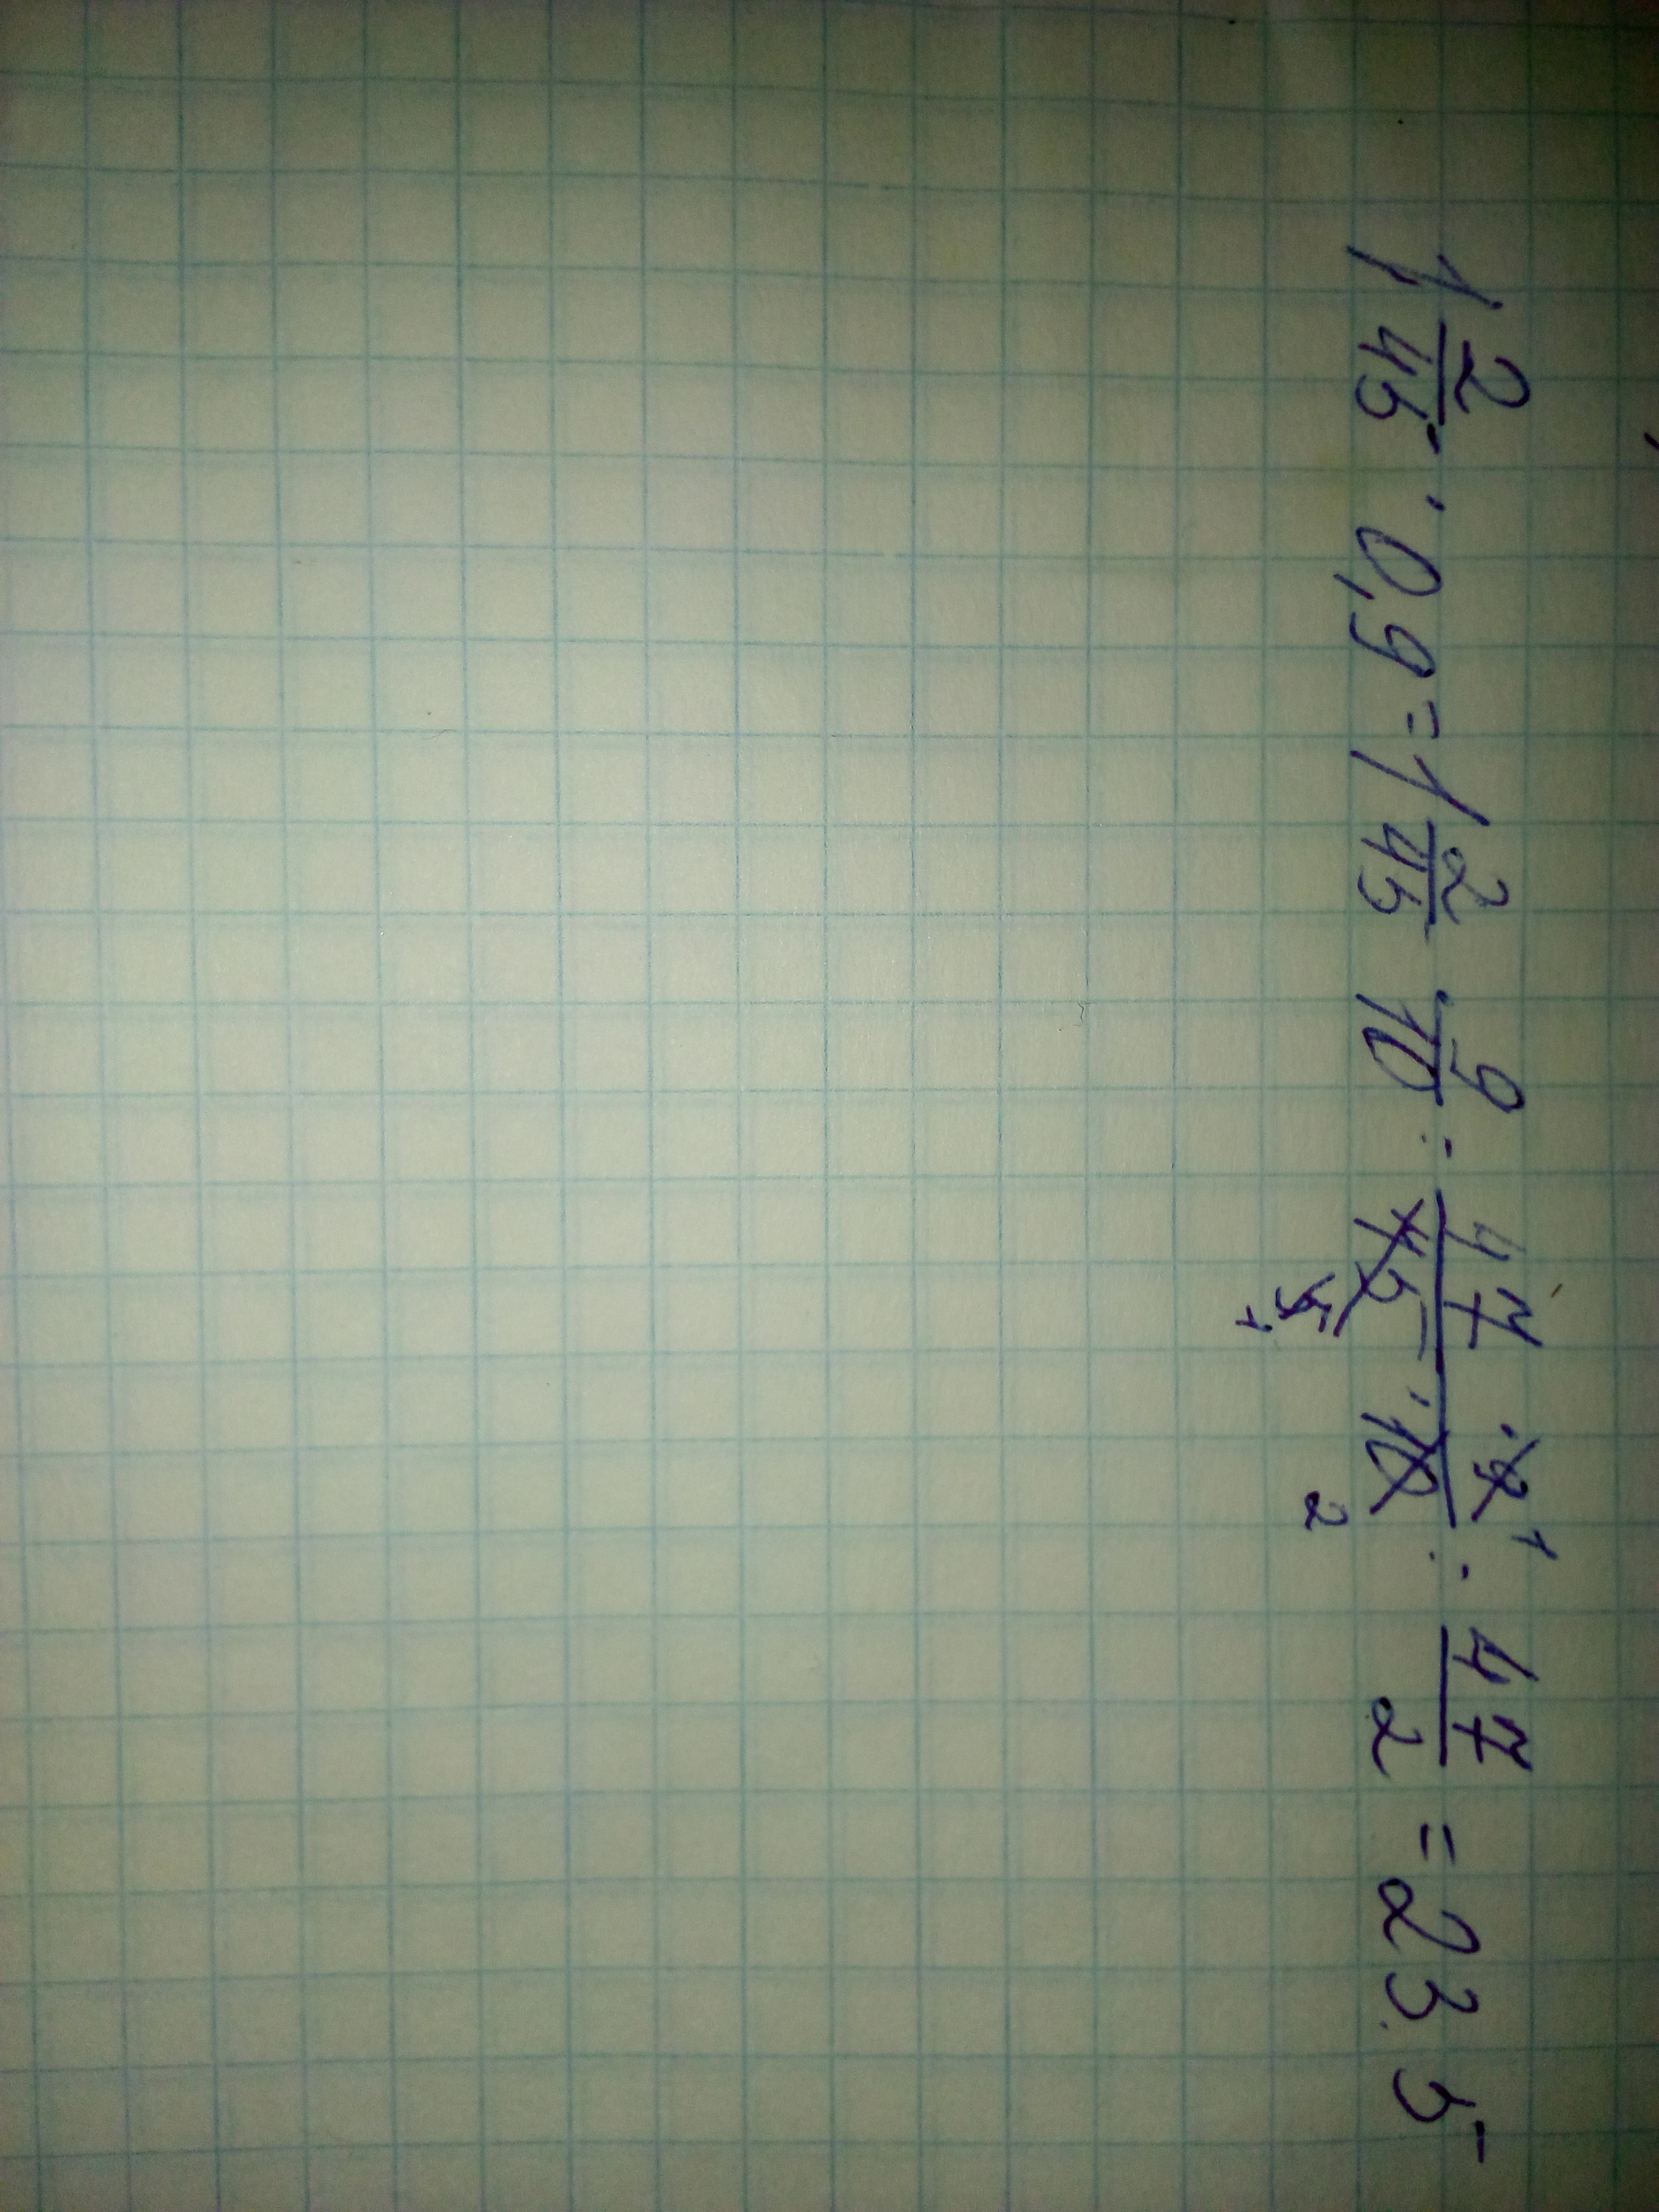 1 2/45 · 0,9 = 1 2/45 · 9/10 = 47 · 9 1 / 45 5 1 · 10 2 = 47/2 = 23.5